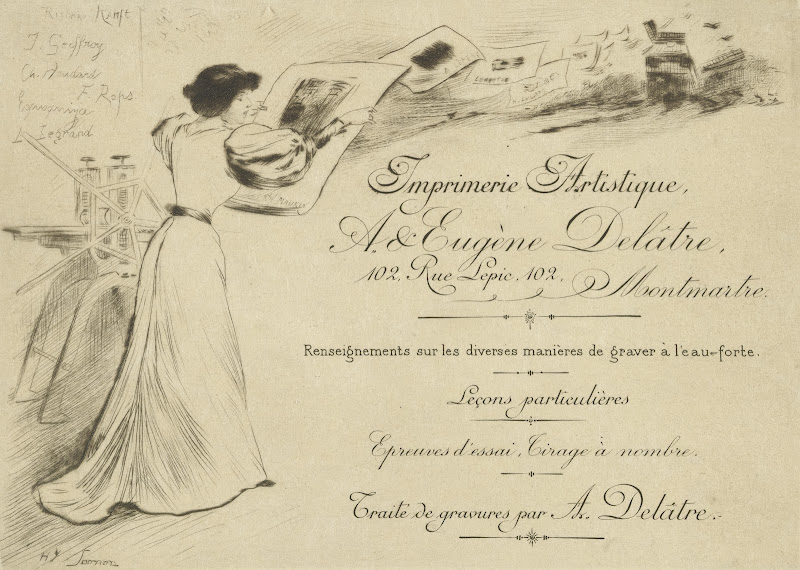 J. Geoffroy
F. Rops
Legrand
Imprimerie Artistique,
A. & Eugène Delâtre,
102, Rue Lepic. 102.
Montmartre.
Renseignements sur les diverses manières de graver à l'eau-forte.
Leçons particulières
Epreuves d'essai, Tirage à nombre.
Traité de gravures par A. Delâtre.